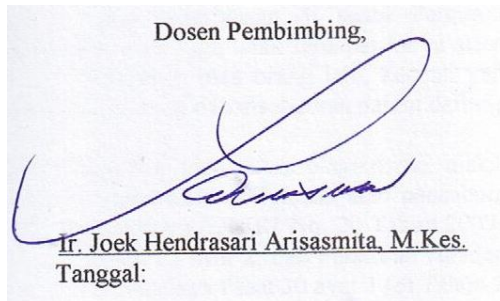 Dosen Pembimbing,
Ir. Joek Hendrasari Arisasmita, M.Kes.
Tanggal: